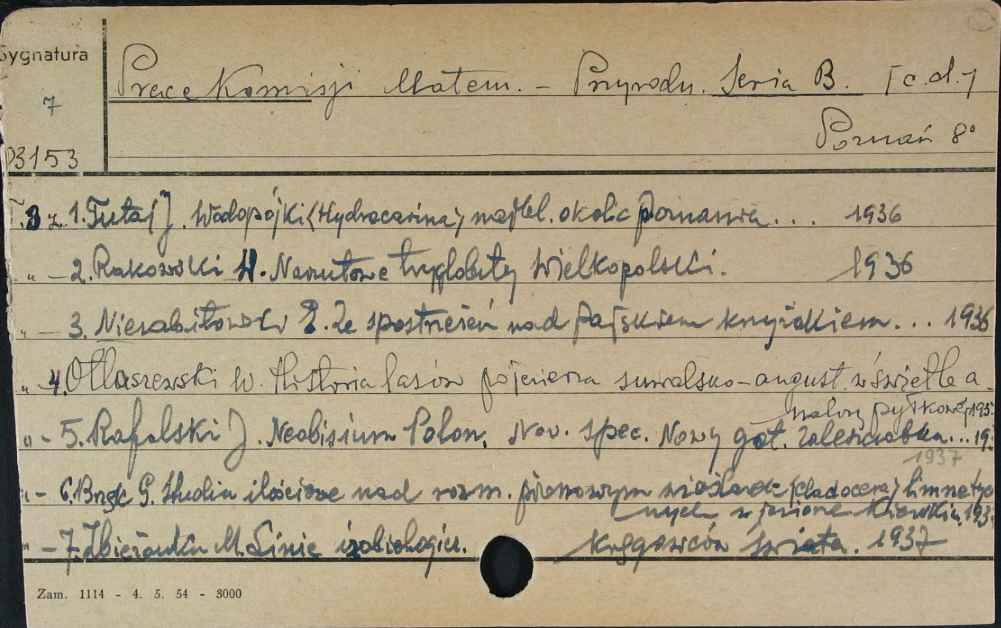 Sygnatura
7
03153
Prace Komisji Matem. - Przyrodn. Seria B. [c.d.]
Poznań 8°
T.8 z. 1. Tutaj J. Wodopójki (Hydracarina) okolic Poznania... 1936
" - 2. Rakowski Narzutowe tryglobity Wielkopolski. 1936
" - 3. Niezabitowski E. Ze spostrzeżeń nad pajskiem krzyżakiem... 1936
" 4. Ołtaszewski W. Historia lasów pojezierza suwalsko-august. w świetle a-
nalizy pyłkowej 193
" - 5. Rafalski J. Neobisium Polon. Nov. spec. Nowy gat. zaleszczotka... 19
1937
" - 6. Brzęk G. Studia ilościowe nad rozm. pionowym wioślarek (cladocera) limnetycz
nych w jeziorze Kierskim. 193
" - 7. Zbierzanka M. Linie izobiologicz. księgozbiorów świata. 1937
Zam. 1114 - 4. 5. 54 - 3000